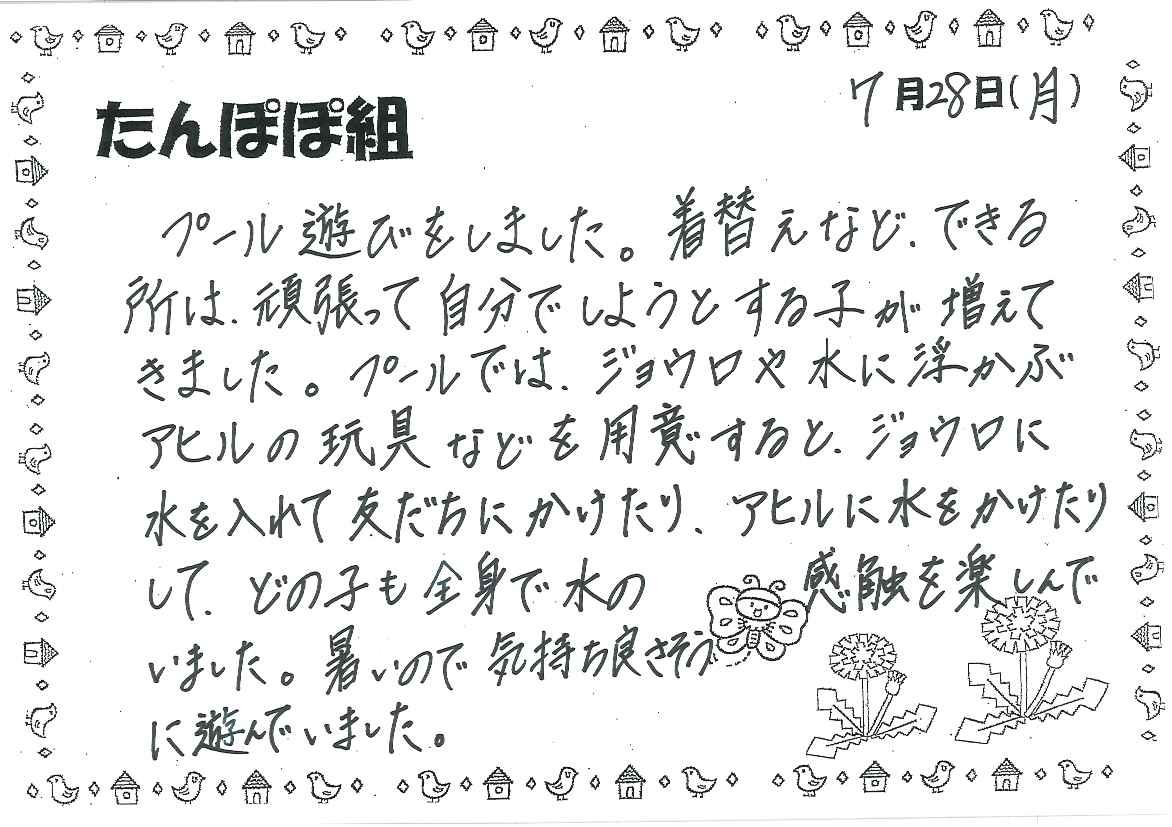 7月28日(月)
たんぽぽ組
プール遊びをしました。着替えなど、できる
所は、頑張って自分でしようとする子が増えて
きました。プールでは、ジョウロや水に浮かぶ
アヒルの玩具などを用意すると、ジョウロに
水を入れて友だちにかけたり、アヒルに水をかけたり
して、どの子も全身で水の感触を楽しんで
いました。暑いので気持ち良さそう
に遊んでいました。